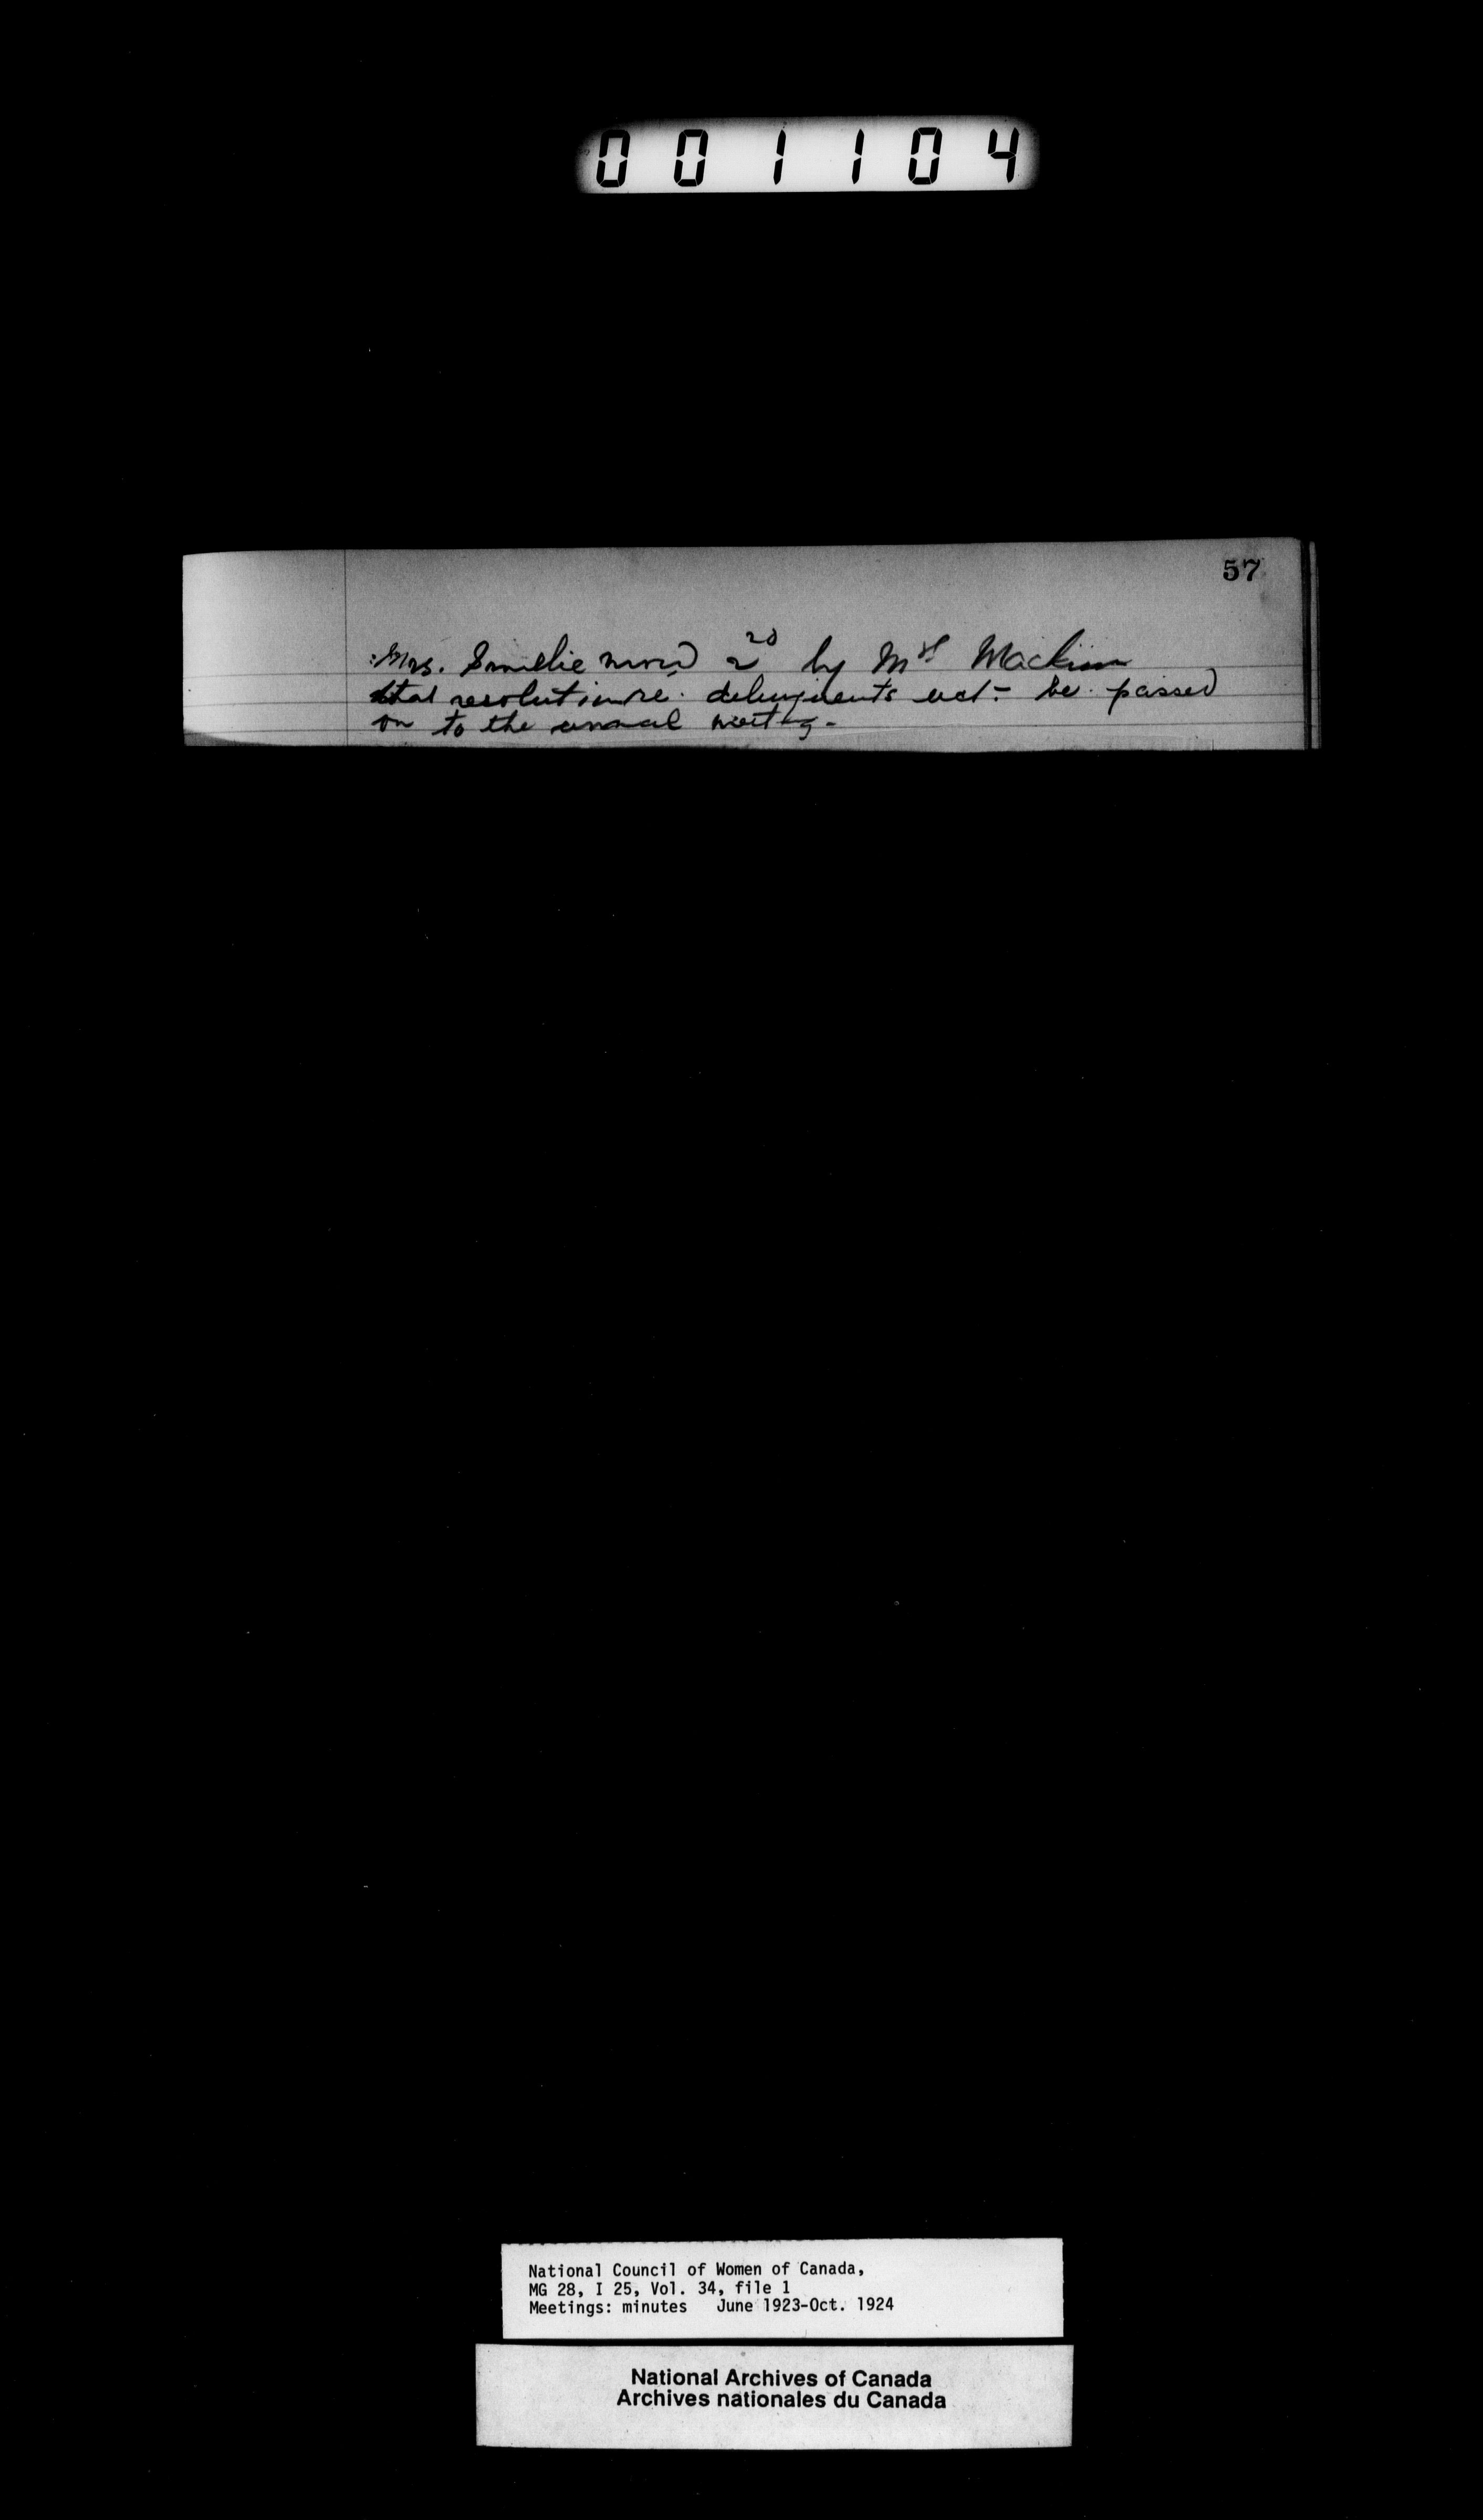 001104
57
Mrs. Smellie moved 2nd by Mrs
that resolution re. delinquents act - be passed
on to the annual meeting -
National Council of Women of Canada,
MG 28, I 25, Vol. 34, file 1
Meetings: minutes June 1923-Oct. 1924
National Archives of Canada
Archives nationales du Canada